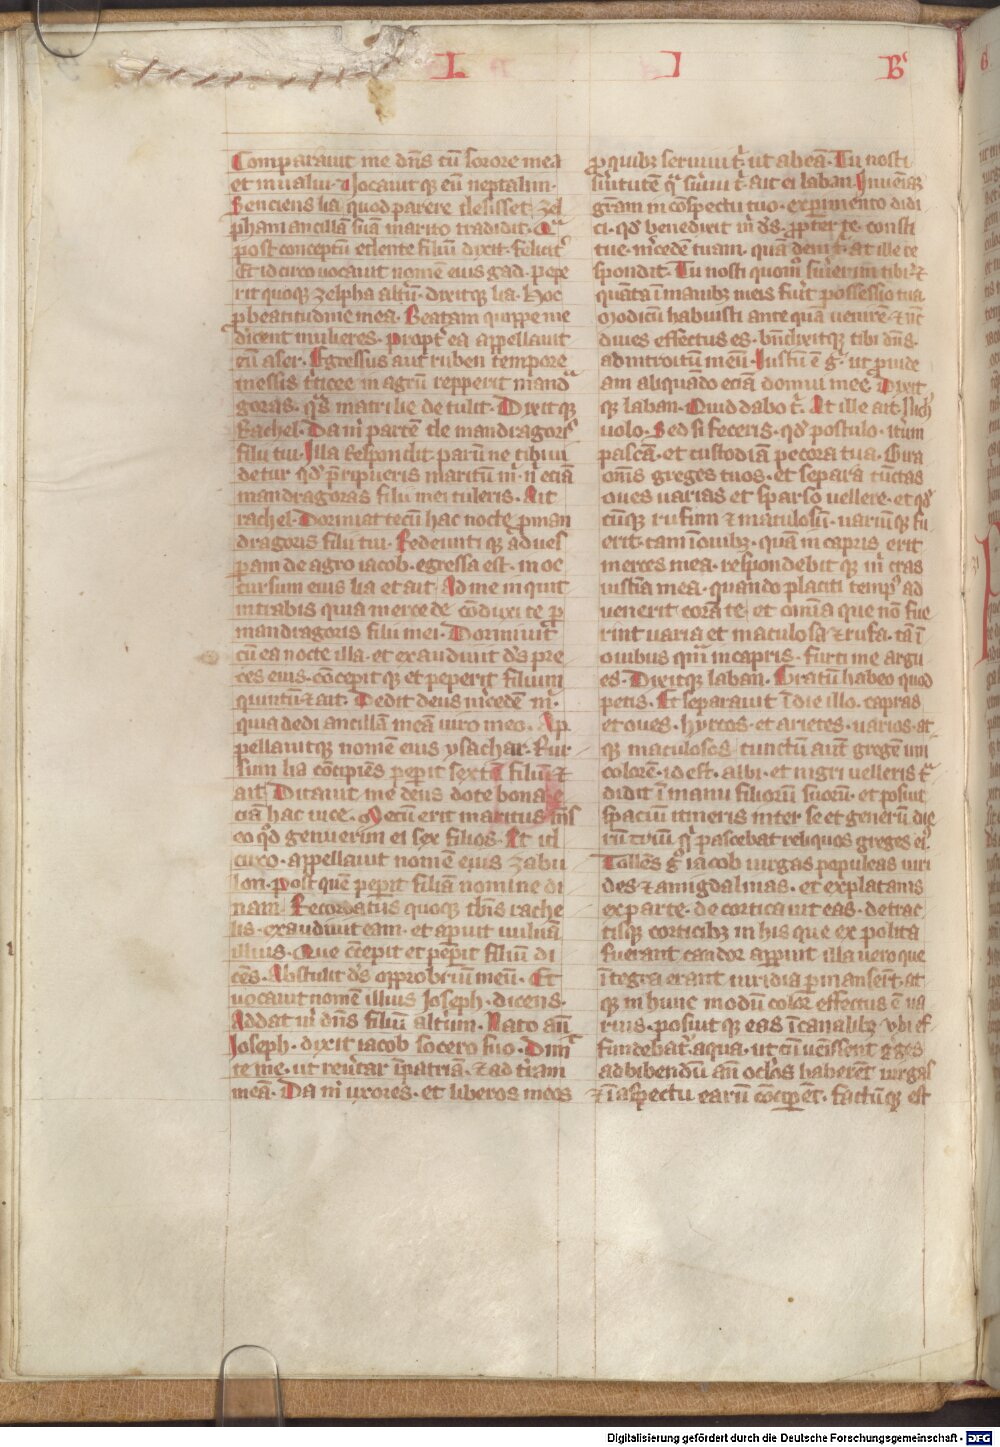 L I Bͬ
Comparauit me dn̄s cū sorore mea
et inualui. Uocauit qꝫ eū neptalim.
Senciens lia quod parere desisset. zel
pham ancillā suā marito tradidit. Q̄
post conceptū edente filiū dixit. feliciť
Et idcirco uocauit nomē eius gad. pepe
rit quoqꝫ zelpha altū. dixitqꝫ lia. hoc
ꝓ beatitudine mea. Beatam quippe me
dicent mulieres. ꝓpter̉ ea appellauit
eū aser. Egressus aut̄ ruben tempore
messis tͥticee in agrū repperit mandᵃ
goras. qͣs matri lie detulit. Dixit qꝫ
Rachel. Da m̄ partē de mandragorꝭ
filii tui. Illa respondit. parū ne tibi ui
detur qd̓ p̄ripueris maritū m̄. nͥ eciā
mandragoras filii mei tuleris. Ait
rachel. Dormiat tecū hac nocte ꝓ man
dragoris filii tui. Redeunti qꝫ ad ues
ꝑam de agro iacob. egressa est. in oc
cursum eius lia et ait. Ad me inquit
intrabis quia mercede cōduxi te ꝓ
mandragoris filii mei. Dormiuit
cū ea nocte illa. et exaudiuit dꝰs pre
ces eius. cōcepit qꝫ et peperit filium
quintū ⁊ ait. Dedit deus m̉cedē m̄.
quia dedi ancillā meā uiro meo. Ap
pellauitqꝫ nomē eius ysachar. Rur
sum lia cōcipiēs peꝑit sextū filiū ⁊
ait. Ditauit me deus dote bona e
ciā hac uice. Mecū erit maritus m̄s
eo qd̓ genuerim ei sex filios. Et id
circo. appellauit nomē eius zabu
lon. post quē peꝑit filiā nomine di
nam. Recordatus quoqꝫ dn̄s rache
lis. exaudiuit eam. et aperuit uuluā
illius. Que cōcepit et peꝑit filiū di
cēs. Abstulit dꝰs opprobriū meū. Et
uocauit nomē illius Joseph. dicens.
Addat m̄ dn̄s filiū altͥum. Nato aū
Joseph. dixit iacob socero suo. Dimͥ
te me. ut reu̓tar ī patriā. ⁊ ad tͥram
meā. Da m̄ uxores. et liberos meos
ꝓ quibꝫ seruiui tͥ. ut abeā. Tu nosti
s̓uitutē qͣ s̓uiui tͥ. ait ei laban. Inueiaꝫ
grām in cōspectu tuo. experimento didi
ci. qd̓ benedixit m̄ dꝰs ꝓpter te. consti
tue m̉cedē tuam. quā dem tͥ. At ille re
spondit. Tu nosti quomͦ su̓ierim tibi. ⁊
quāta ī manibꝫ meis fuͥt possessio tua
Modicū habuisti ante quā uenirē. ⁊ n̄c
diues effectus es. bn̄dixitqꝫ tibi dn̄s.
ad introitū meū. Iustū ē g̉. ut ꝓuide
am aliquādo eciā domui mee. Dixit
qꝫ laban. Quid dabo tͥ. At ille ait. Nichͥ
uolo. Sed si feceris. qd̓ postulo. it̉um
pascā. et custodiā pecora tua. Gira
om̄s greges tuos. et separa cūctas
oues uarias et sparso uellere. et qd̓
cūqꝫ rufum ⁊ maculosū. uariū qꝫ fu
erit. tam ī ouibꝫ. quā in capris erit
merces mea. respondebit qꝫ m̄ cras
iusticia mea. quando placiti tempꝰ ad
uenerit corā te. et omīa que nō fue
rint uaria et maculosa ⁊ rufa. tā ī
ouibus quā in capris. furti me argu
es. Dixitqꝫ laban. Gratū habeo quod
petis. Et separauit ī die illo. capras
et oues. hyrcos. et arietes. uarios. at
qꝫ maculosos. cunctū aut̄ gregē uni
colorē. id est. albi. et nigri uelleris tͣ
didit ī manu filiorū suorū. et posuit
spaciū itineris inter se et generū die
rū triū. qͥ pascebat reliquos greges eiꝰ.
Tollēs g̉ iacob uirgas populeas uiri
des ⁊ amigdalinas. et ex platanis
ex parte. decorticauit eas. detrac
tisqꝫ corticibꝫ in his que expolita
fuerant candor apparuit. illa uero que
ītegra erant uiridia ꝑmanserūt. at
qꝫ in hunc modū color effectus ē ua
rius. posuit qꝫ eas ī canalibꝫ. vbi ef
fundebat̉ aqua. ut cū uēissent g̉ges
ad bibendū añ ocl̓os haberēt uirgas
⁊ ī aspectu earū cōciperēt. factū qꝫ est
1
Digitalisierung gefördert durch die Deutsche Forschungsgemeinschaft - DFG